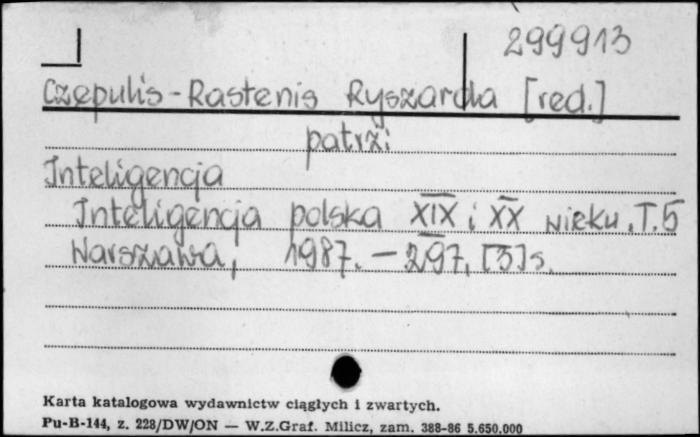 299913
Czepulis-Rastenis Ryszarda [red.]
patrz:
Inteligencja
Inteligencja polska XIX i XX wieku. T.5
Warszawa, 1987. - 297, [3] s.
Karta katalogowa wydawnictw ciągłych i zwartych.
Pu-B-144, z. 228/DW/ON — W.Z.Graf. Milicz, zam. 388-86 5.650.000